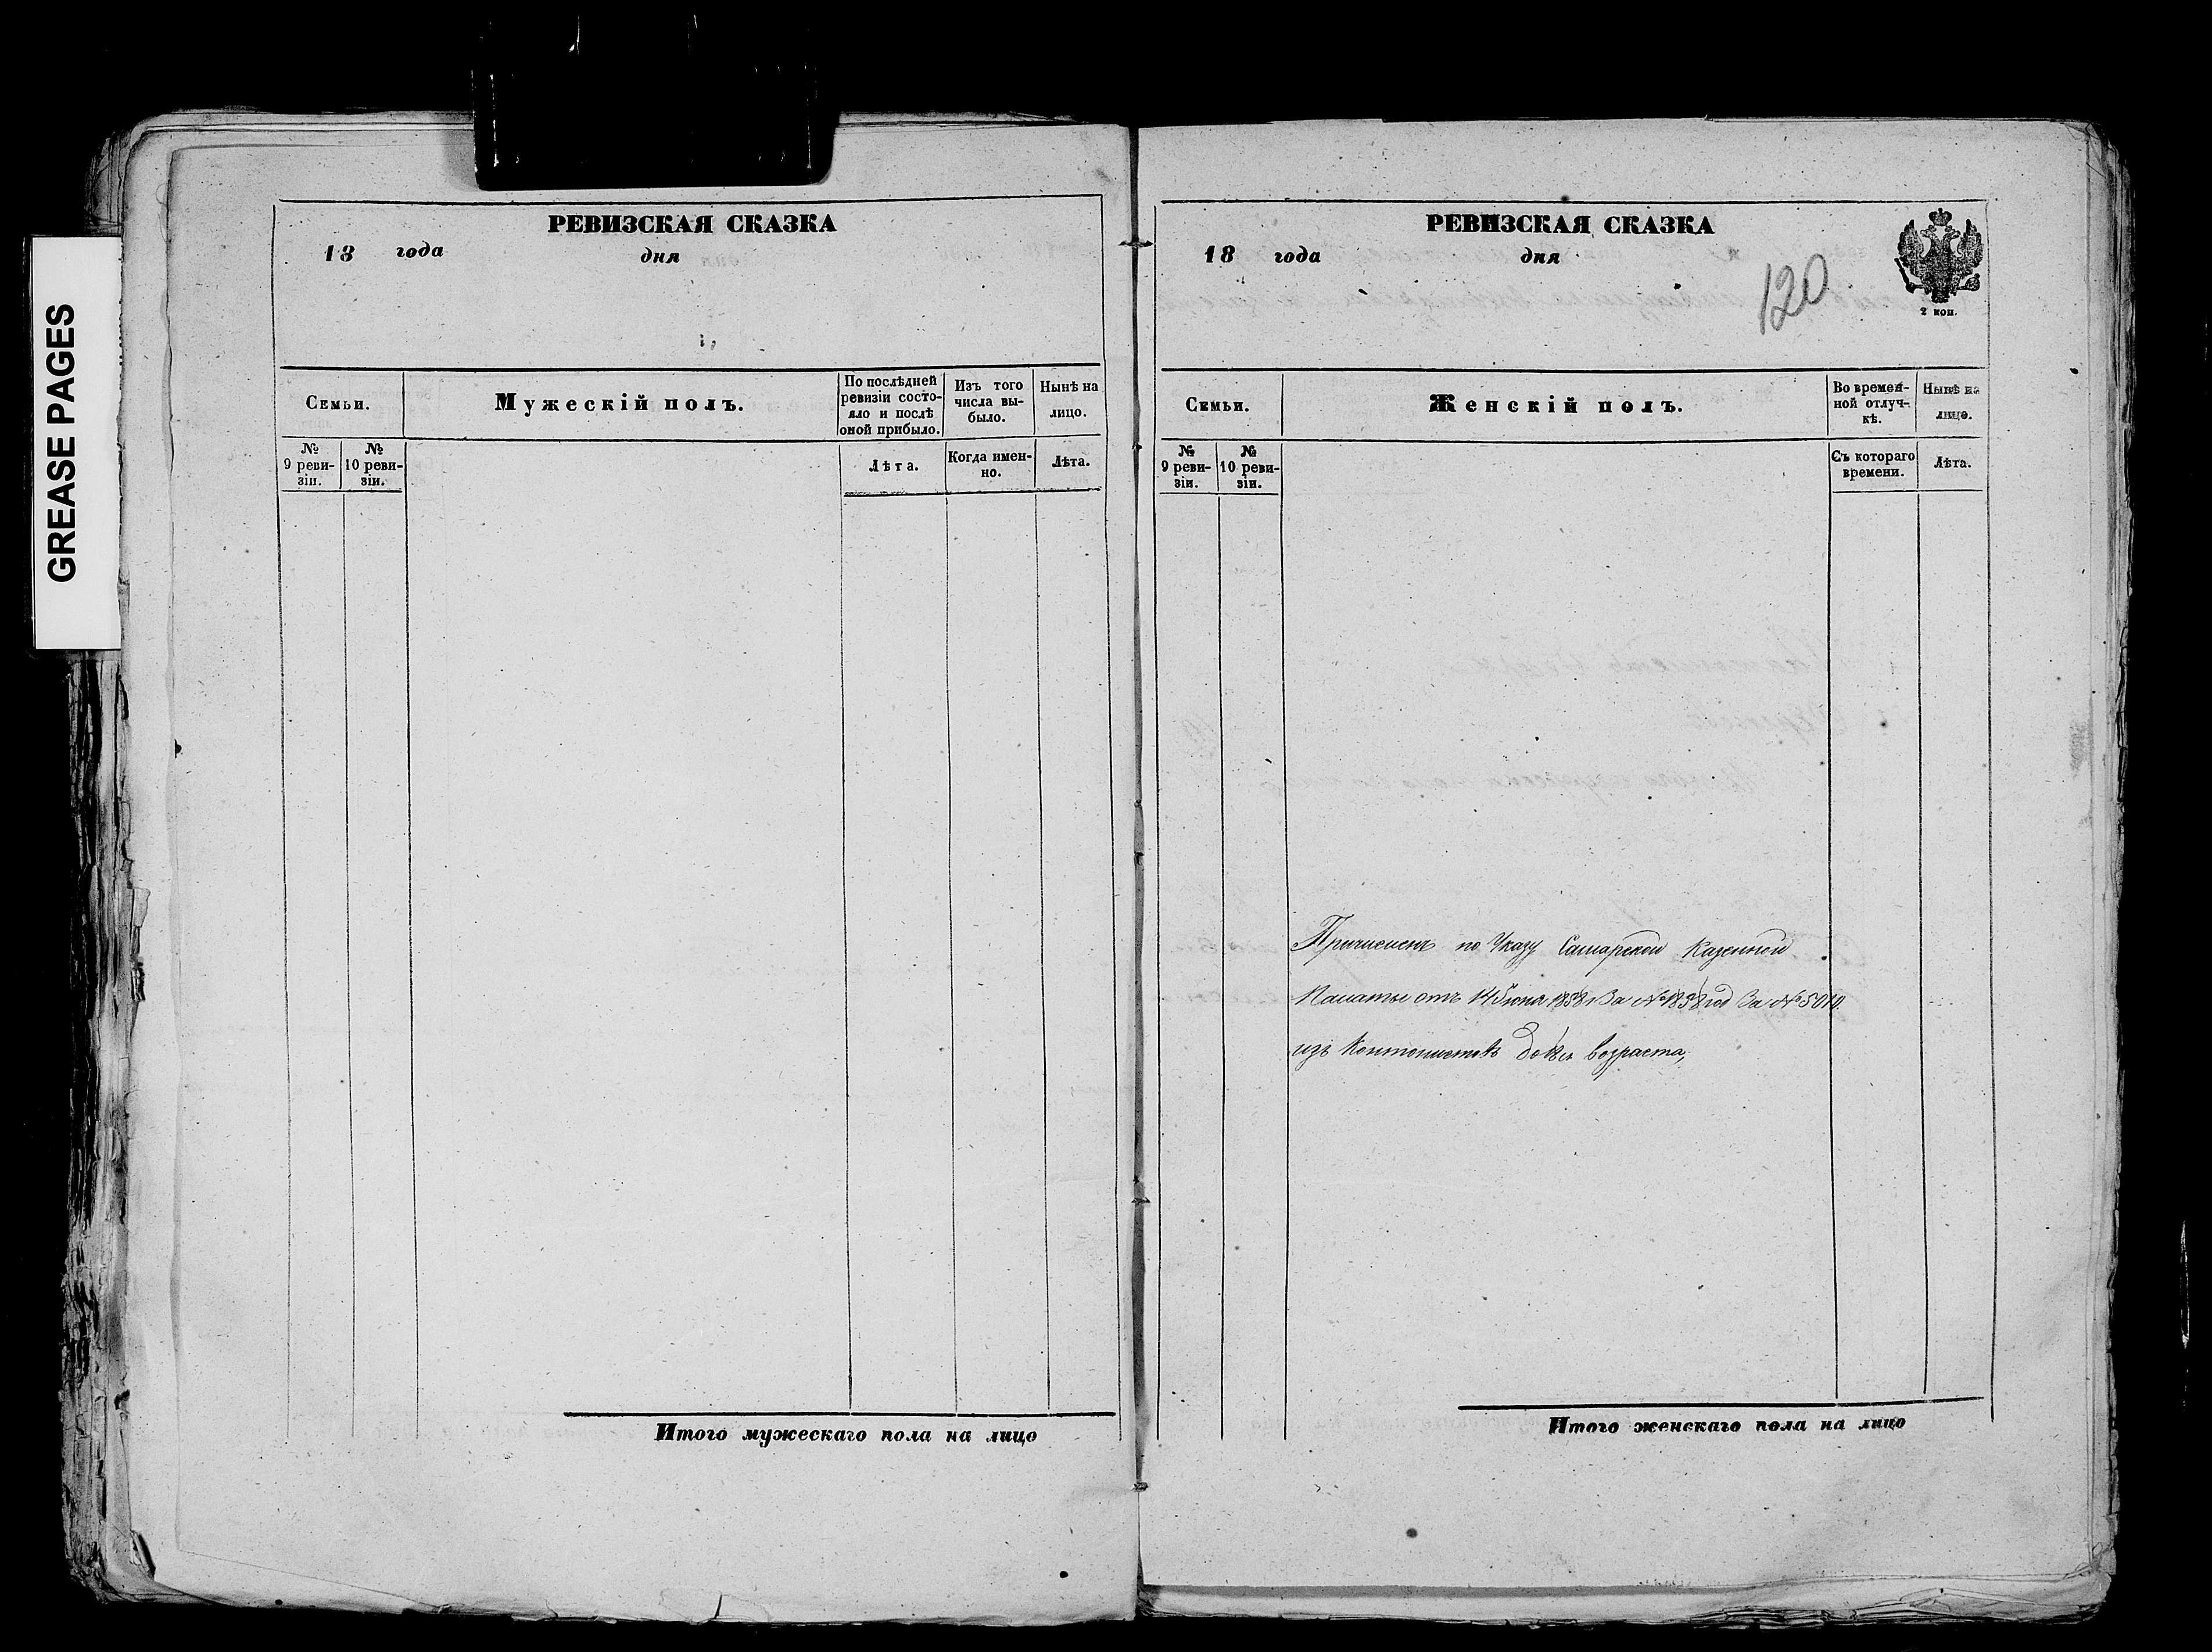 GREASE PAGES
РЕВИЗСКАЯ СКАЗКА
18 года дня
Семьи.
Мужескій полъ.
По послѣдней
ревизіи состо-
яло и послѣ
оной прибыло.
Изъ того
числа вы-
было.
Нынѣ на
лицо.
№
9 реви-
зіи.
№
10 реви-
зіи.
Лѣта.
Когда имен-
но.
Лѣта.
Итого мужескаго пола на лицо
РЕВИЗСКАЯ СКАЗКА
18 года дня
120
2 коп.
Семьи.
Женскій полъ.
Во времен-
ной отлуч-
кѣ.
Нынѣ на
лицо.
№
9 реви-
зіи.
№
10 реви-
зіи.
Съ котораго
времени.
Лѣта.
Причисленъ по Указу Самарской Казенной
Палаты отъ 14 1858 За № год За №5010.
изъ Кантонистовъ возраста,
Итого женскаго пола на лицо